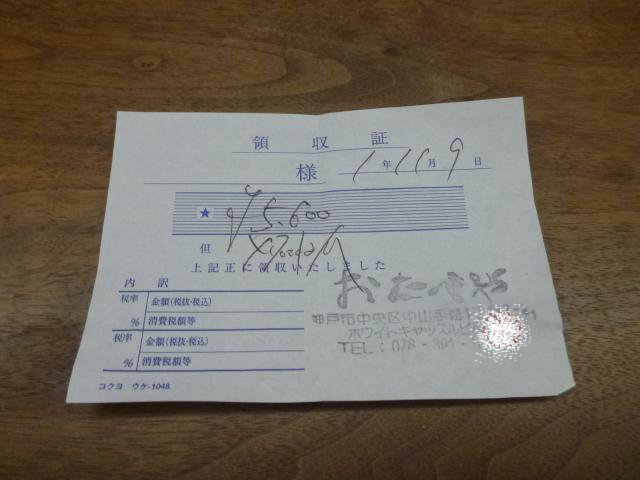 領収証
様 1年11月9日
★ ¥5,600
但
上記正に領収いたしました
内訳
税率 金額(税抜・税込)
% 消費税額等
税率 金額(税抜・税込)
% 消費税額等
神戸市中央区中山手通1
ホワイトキャッスルビ
TEL:078-391-
コクヨ ウケ-1048